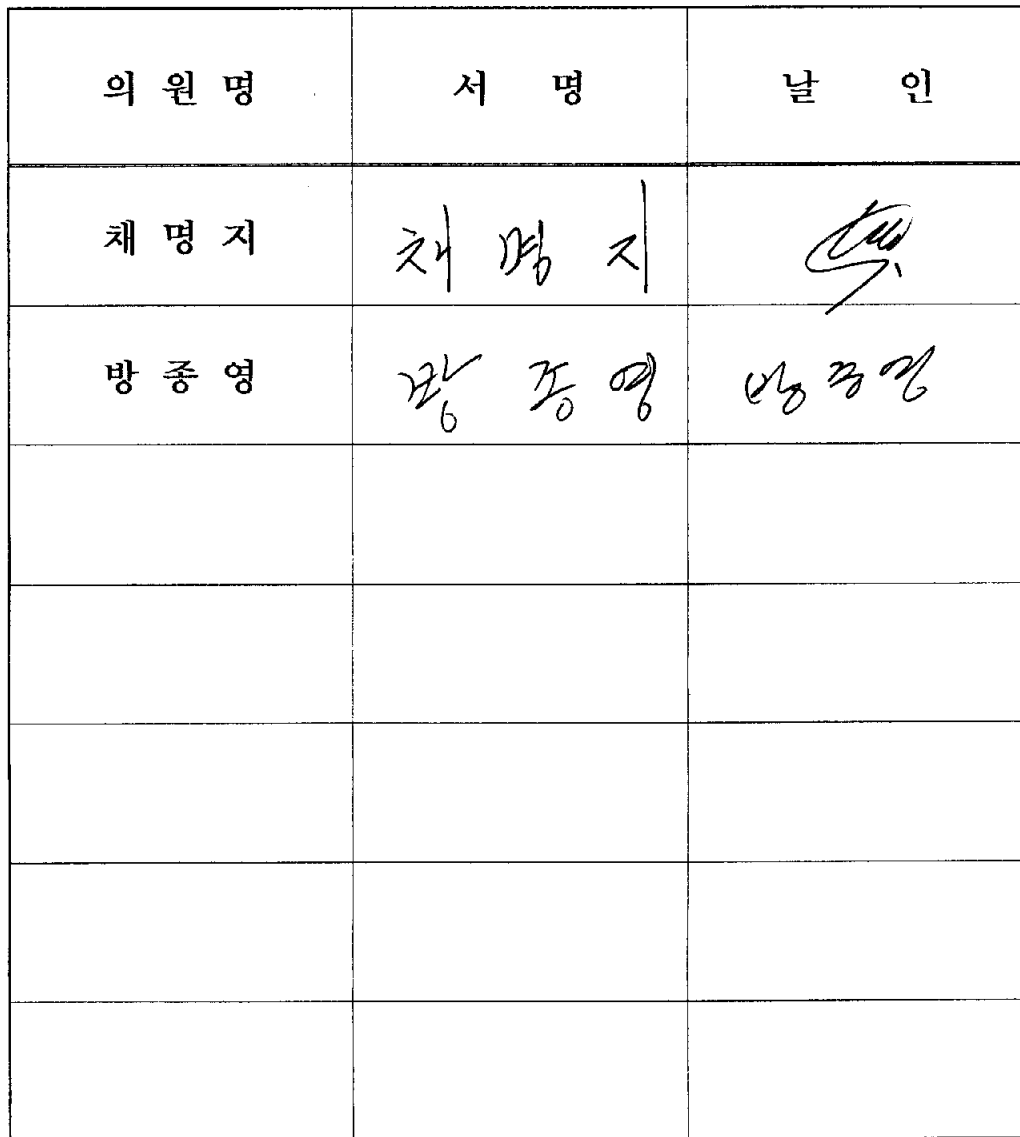 의 원 명 서 명 날 인
채 명 지 채 명 지
방 종 영 방 종 영 방종영